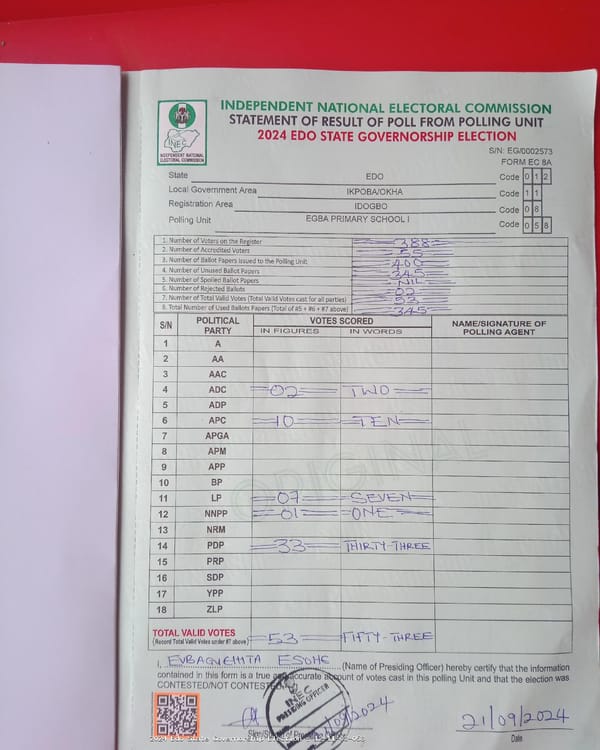 INDEPENDENT NATIONAL ELECTORAL COMMISSION
STATEMENT OF RESULT OF POLL FROM POLLING UNIT
2024 EDO STATE GOVERNORSHIP ELECTION
INEC
INDEPENDENT NATIONAL
ELECTORAL COMMISSION
S/N: EG/0002573
FORM EC 8A
State EDO Code 0 1 2
Local Government Area IKPOBA/OKHA Code 1 1
Registration Area IDOGBO Code 0 8
Polling Unit EGBA PRIMARY SCHOOL I Code 0 5 8
1. Number of Voters on the Register 388
2. Number of Accredited Voters 55
3. Number of Ballot Papers Issued to the Polling Unit 400
4. Number of Unused Ballot Papers 345
5. Number of Spoiled Ballot Papers NIL
6. Number of Rejected Ballots 02
7. Number of Total Valid Votes (Total Valid Votes cast for all parties) 53
8. Total Number of Used Ballots Papers (Total of #5 + #6 + #7 above) 345
S/N POLITICAL PARTY VOTES SCORED NAME/SIGNATURE OF POLLING AGENT
IN FIGURES IN WORDS
1 A
2 AA
3 AAC
4 ADC 02 TWO
5 ADP
6 APC 10 TEN
7 APGA
8 APM
9 APP
10 BP
11 LP 07 SEVEN
12 NNPP 01 ONE
13 NRM
14 PDP 33 THIRTY-THREE
15 PRP
16 SDP
17 YPP
18 ZLP
ORIGINAL
TOTAL VALID VOTES 53 FIFTY-THREE
(Record Total Valid Votes under #7 above)
I, ESOHE (Name of Presiding Officer) hereby certify that the information
contained in this form is a true and accurate account of votes cast in this polling Unit and that the election was
CONTESTED/NOT CONTESTED
INEC
PRESIDING OFFICER
21/09/2024
Date